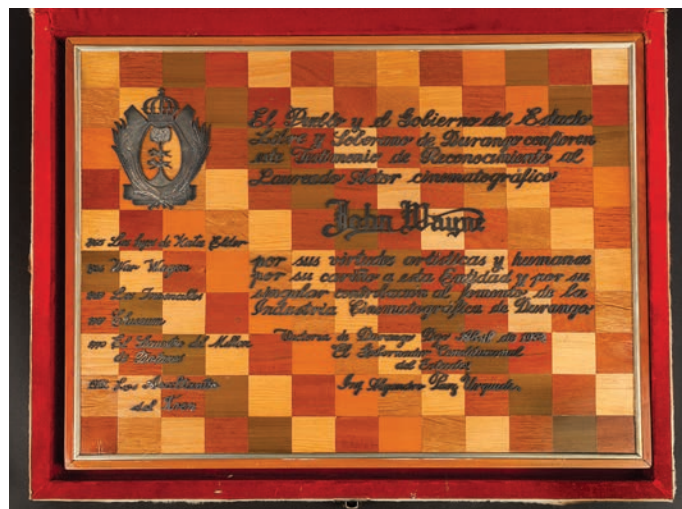 El Pueblo y el Gobierno del Estado
Libre y Soberano de Durango confieren
este Testimonio de Reconocimiento al
Laureado Actor cinematográfico
John Wayne
por sus virtudes artísticas y humanas
por su cariño a esta Entidad y por su
singular al fomento de la
Industria Cinematográfica de Durango
Victoria de Durango Dgo. Abril de
El Gobernador Constitucional
del Estado
Ing. Alejandro Páez Urquidi.
Los hijos de Katie Elder
War Wagon
Los
Chisum
El del Millón
de
Los Asaltantes
del Tren